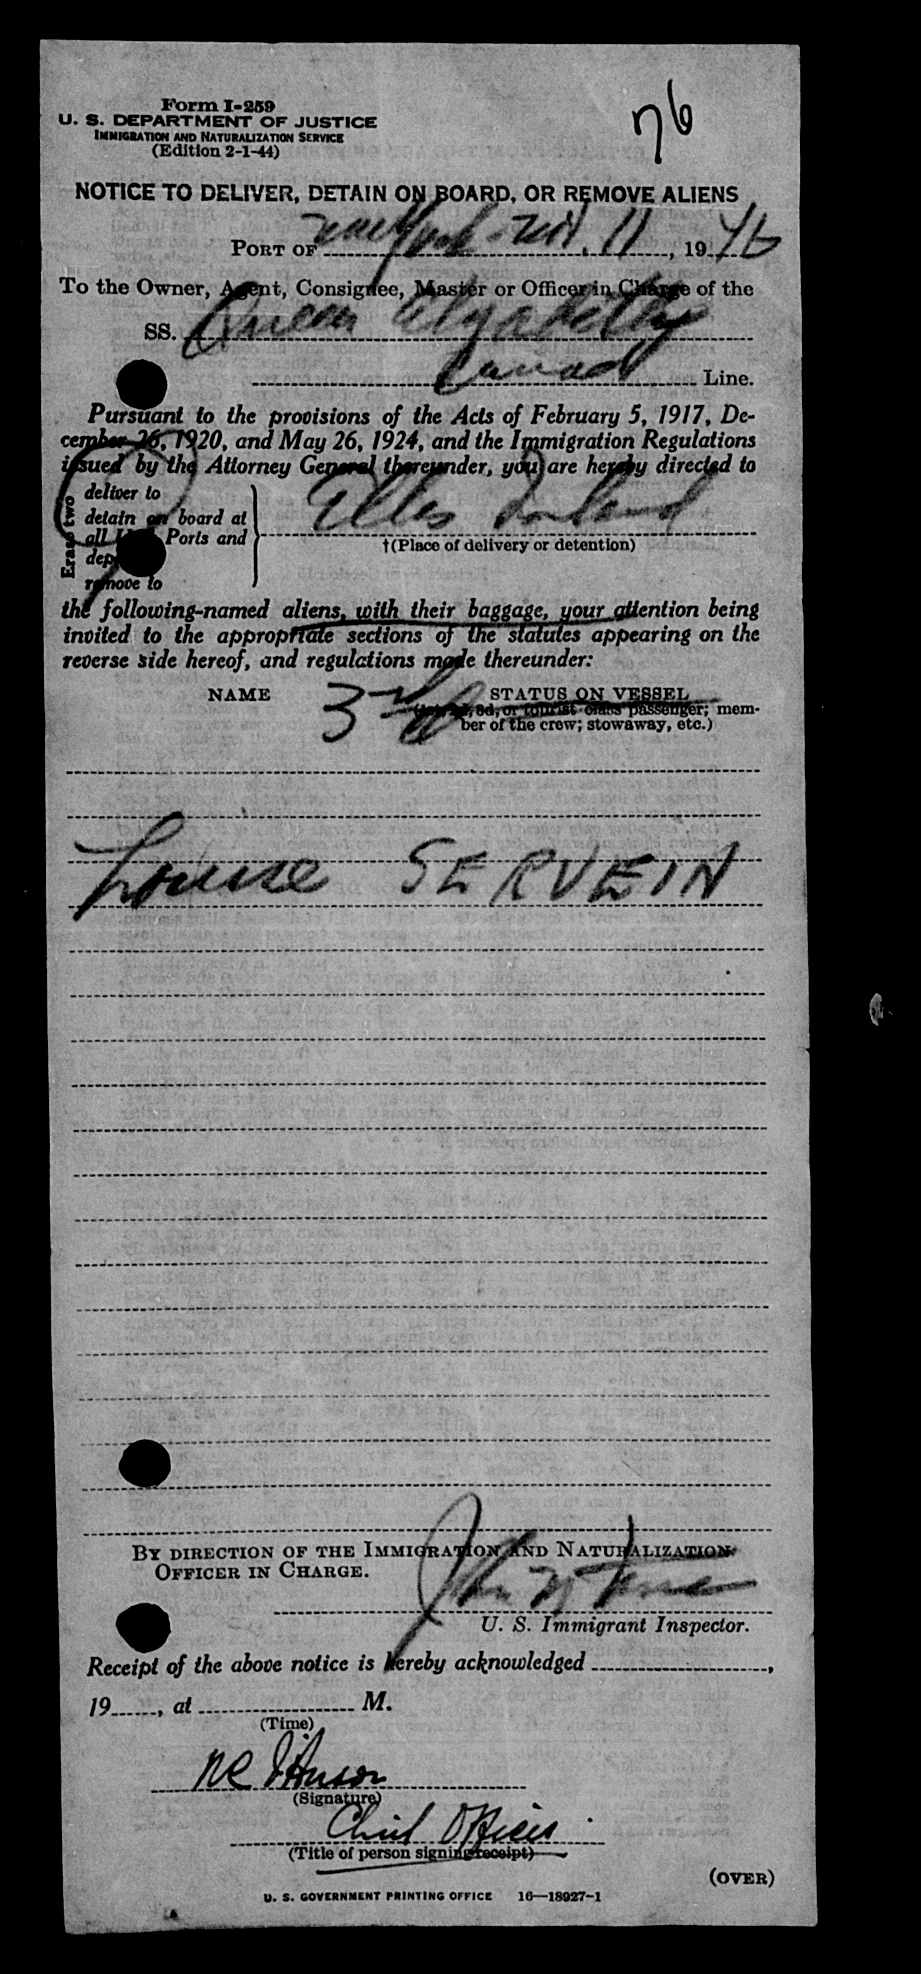 Form I-259
U. S. DEPARTMENT OF JUSTICE
IMMIGRATION AND NATURALIZATION SERVICE
(Edition 2-1-44)
76
NOTICE TO DELIVER, DETAIN ON BOARD, OR REMOVE ALIENS
PORT OF New York - Nov. 11, 1946
To the Owner, Agent, Consignee, Master or Officer in Charge of the
SS. Queen Elizabeth
Cunard Line.
Pursuant to the provisions of the Acts of February 5, 1917, De-
cember 26, 1920, and May 26, 1924, and the Immigration Regulations
issued by the Attorney General thereunder, you are hereby directed to
Erase two
deliver to
detain on board at
all U. S. Ports and
deport
remove to
Ellis Island
†(Place of delivery or detention)
the following-named aliens, with their baggage, your attention being
invited to the appropriate sections of the statutes appearing on the
reverse side hereof, and regulations made thereunder:
NAME 3rd STATUS ON VESSEL
3d, or tourist class passenger; mem-
ber of the crew; stowaway, etc.)
Louise SERVEIN
BY DIRECTION OF THE IMMIGRATION AND NATURALIZATION
OFFICER IN CHARGE.
John
U. S. Immigrant Inspector.
Receipt of the above notice is hereby acknowledged ,
19 , at M.
(Time)
(Signature)
Chief Officer
(Title of person signing receipt)
(OVER)
U. S. GOVERNMENT PRINTING OFFICE 16—18927-1